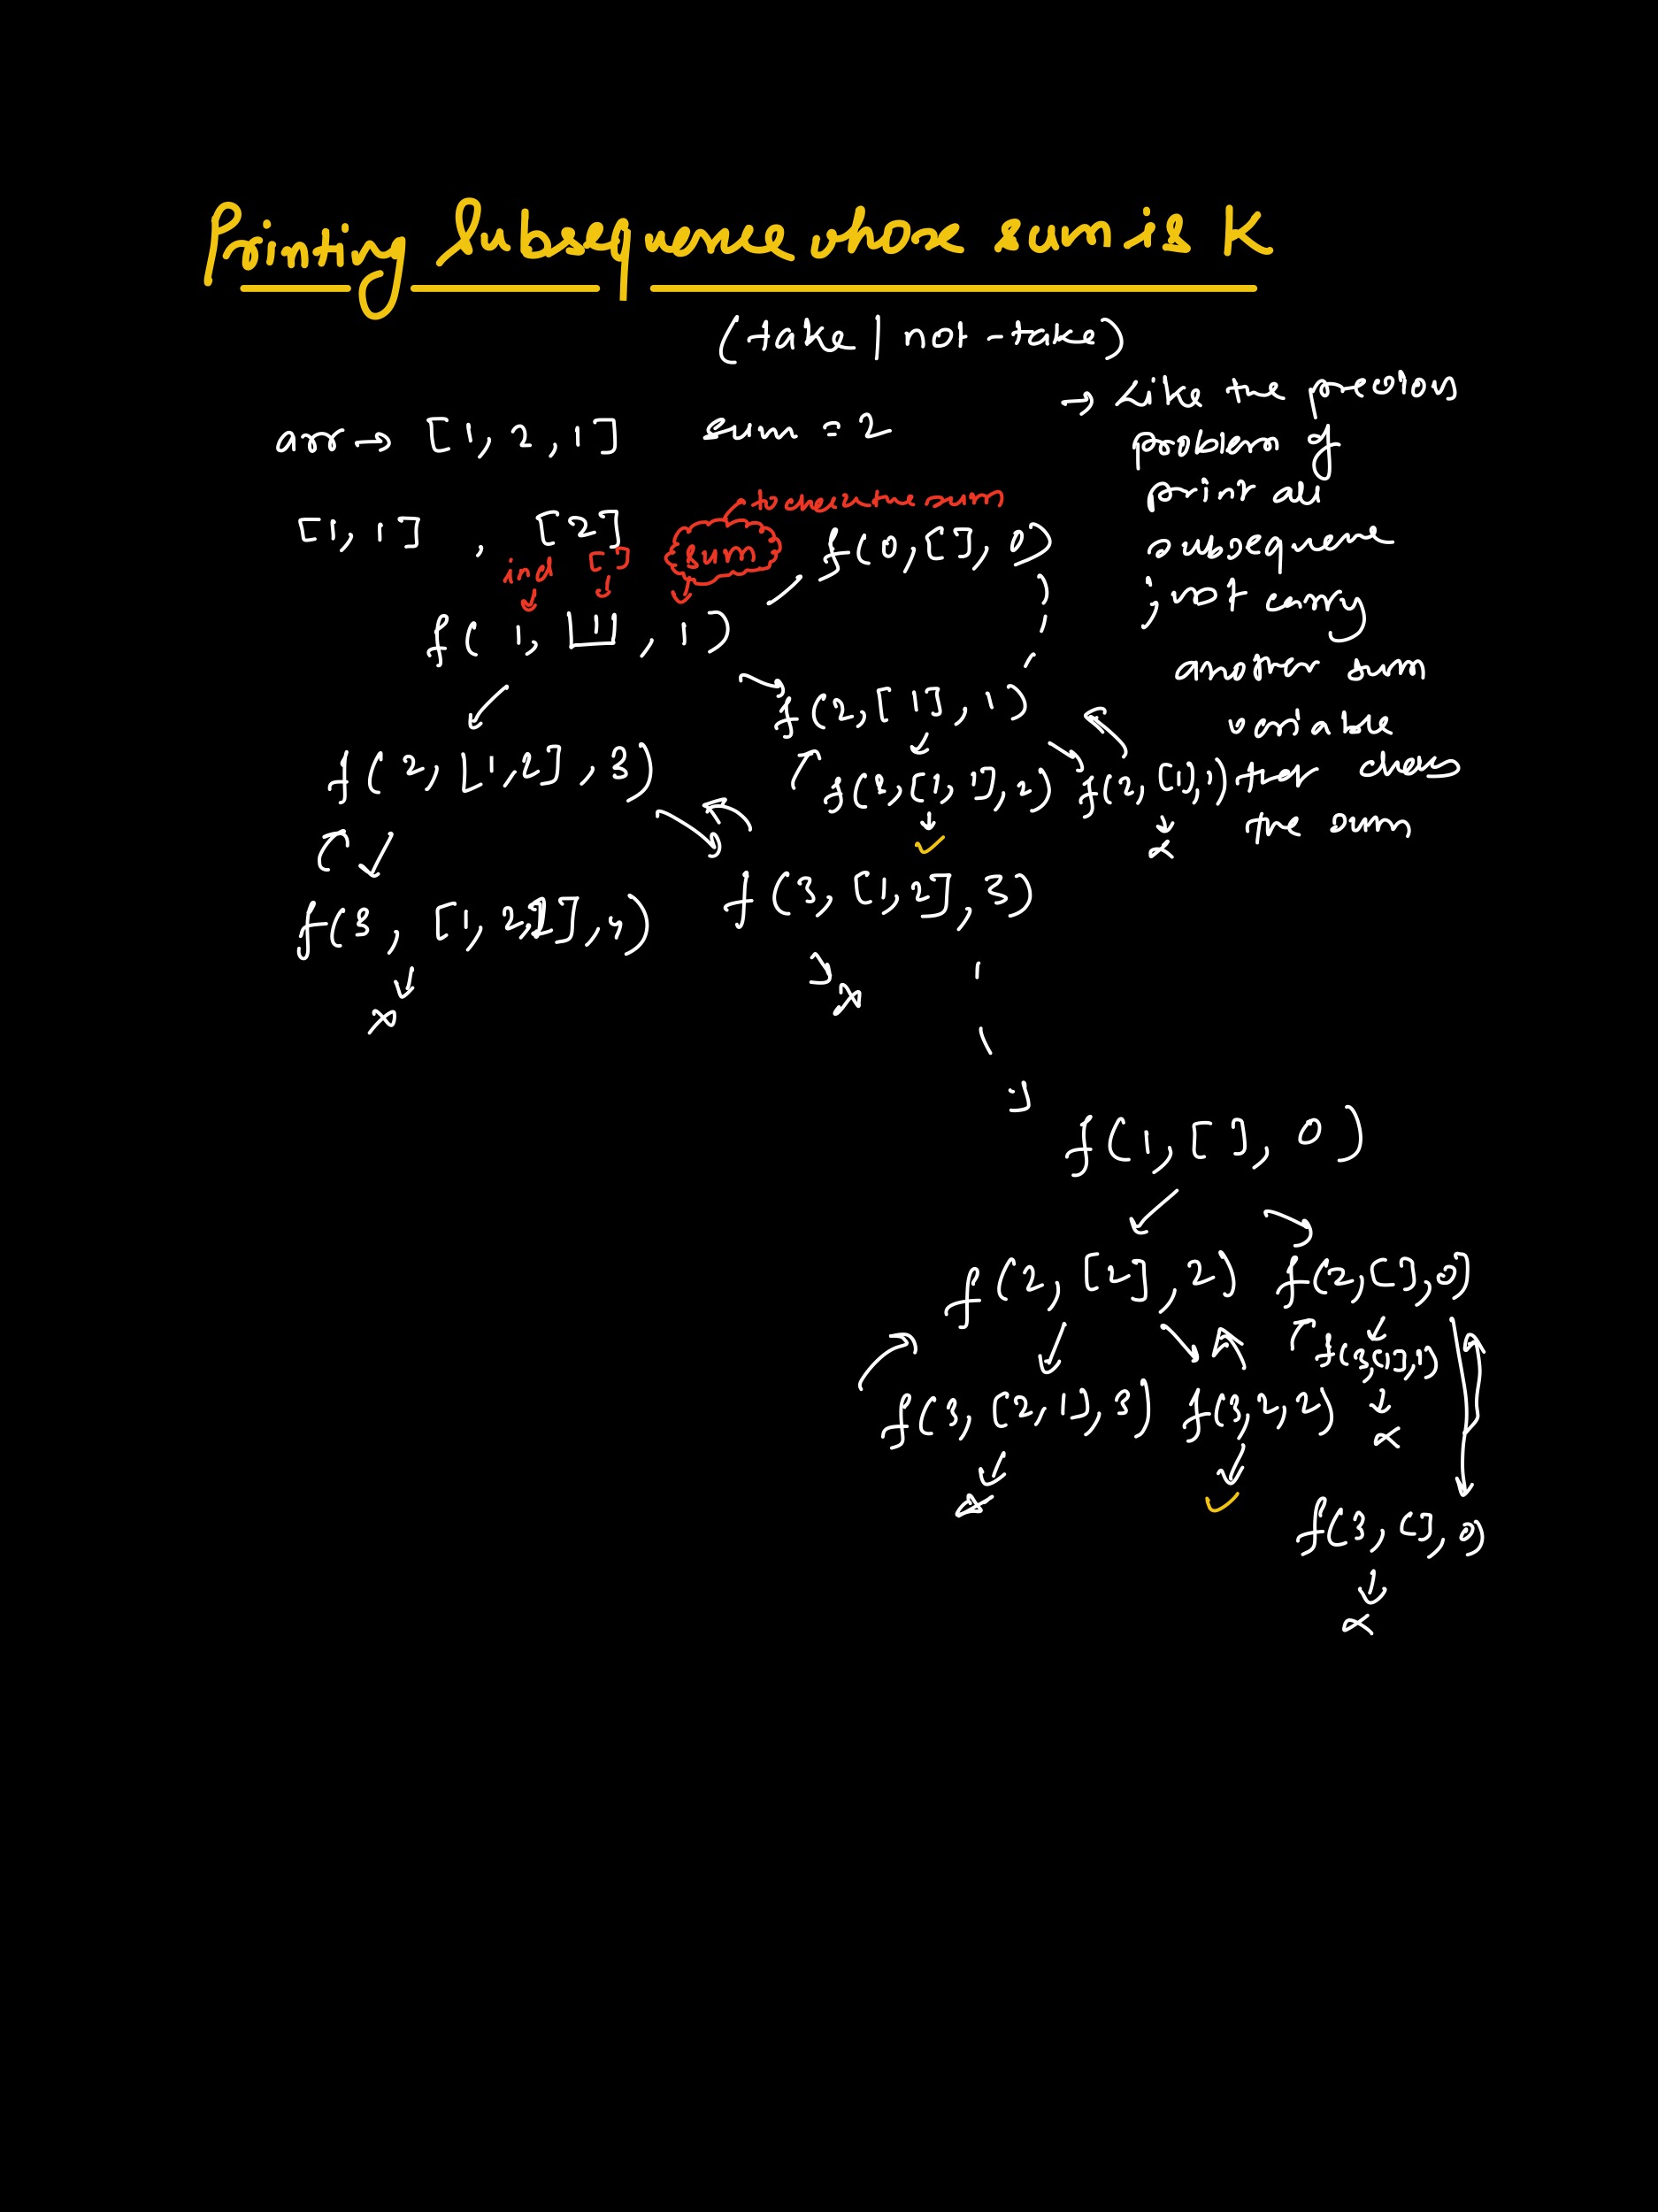 Printing Subsequence whose sum is K
(take | not-take)
arr → [1, 2, 1] sum = 2
→ Like the previous
problem of
print all
subsequence
; not carry
another sum
variable
that checks
the sum
[1, 1] , [2]
to check the sum
ind [] sum
f(0, [], 0)
f(1, [1], 1)
f(2, [1], 1)
f(2, [1,2], 3)
f(3, [1, 1], 2) f(2, [1], 1)
✓ x
f(3, [1, 2, 1], 4) f(3, [1,2], 3)
x x
f(1, [], 0)
f(2, [2], 2) f(2, [], 0)
f(3, [1], 1)
f(3, [2, 1], 3) f(3, 2, 2) x
x ✓
f(3, [], 0)
x